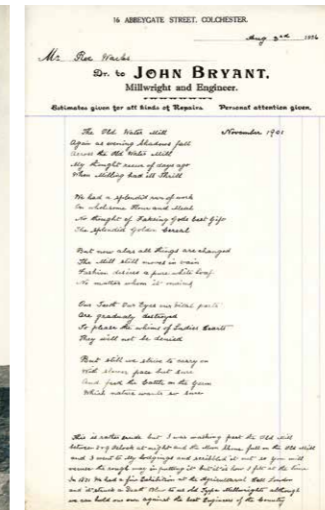 16 ABBEYGATE STREET, COLCHESTER.
Aug 3rd
Mr
Dr. to JOHN BRYANT,
Millwright and Engineer.
Estimates given for all kinds of Repairs. Personal attention given.
The Old Water Mill November 1901
Again as evening Shadows fall
Across the Old Water Mill
My thought recur of days ago
When Milling had its Thrill
We had a splendid run of work
On wholesome Flour and Meal
No thought of Fakeing Gods best Gift
The splendid Golden Cereal
But now alas all things are changed
The Mill still moves in vain
Fashion desires a pure white loaf
No matter whom it
Our Teeth Our Eyes our vital parts
Are gradualy destroyed
To please the whims of Ladies Hearts
They will not be denied
But still we strive to carry on
With slower pace but sure
And feed the Cattle on the Green
Which nature wants so sure
This is rather crude but I was walking past the Old Mill
between 8 o/9 oclock at night and the Moon Shone full on the Old Mill
and I went to My lodgings and scribbled it out so you will
excuse the rough way in putting it but it is how I felt at the time
In 1881 We had a fine Exhibition at the Agricultural Hall London
and it struck a Death Blow to us old Type Millwrights although
we can hold our own against the best Engineers of the Country